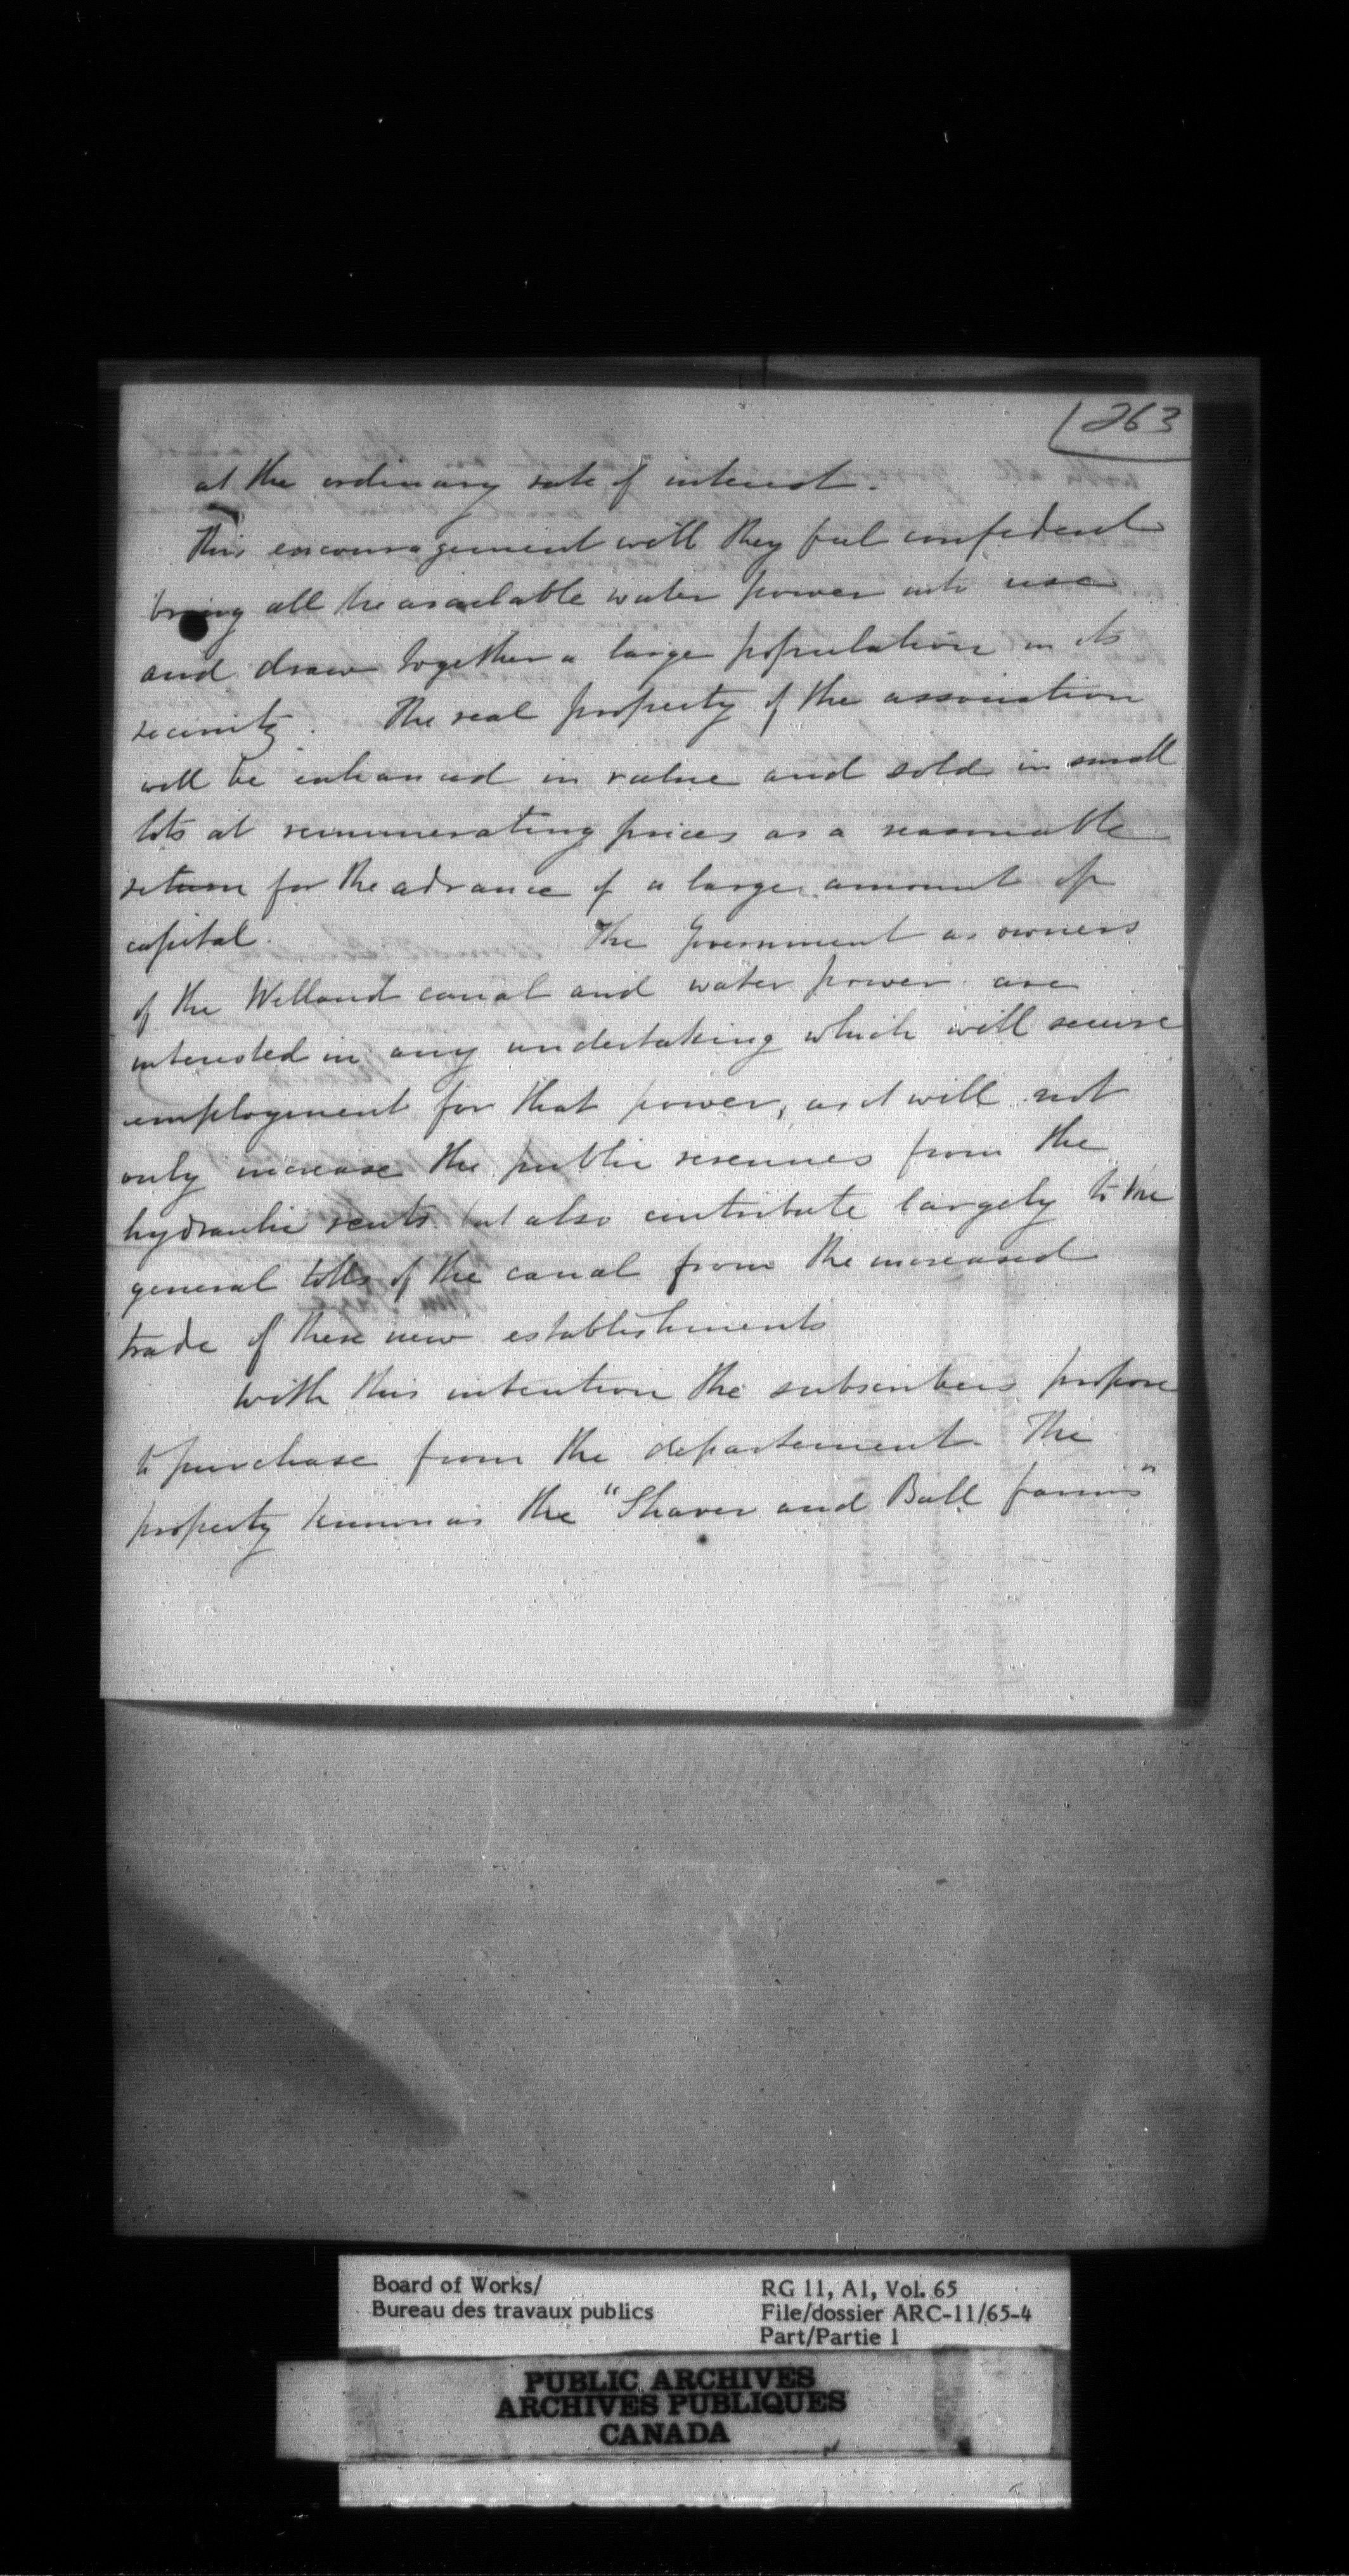 263
at the ordinary rate of interest.
This encouragement will they feel confident
bring all the available water power into use
and draw together a large population in its
vicinity. The real property of the association
will be enhanced in value and sold in small
lots at remunerating prices as a reasonable
return for the advance of a large amount of
capital. The Government as owners
of the Welland canal and water power are
interested in any undertaking which will secure
employment for that power, as it will not
only increase the public revenues from the
hydraulic rents but also contribute largely to the
general tolls of the canal from the increased
trade of these new establishments
With this intention the subscribers propose
to purchase from the departement The
property known as the "Shaver and Ball farms"
Board of Works/
Bureau des travaux publics
RG 11, A1, Vol. 65
File/dossier ARC-11/65-4
Part/Partie 1
PUBLIC ARCHIVES
ARCHIVES PUBLIQUES
CANADA